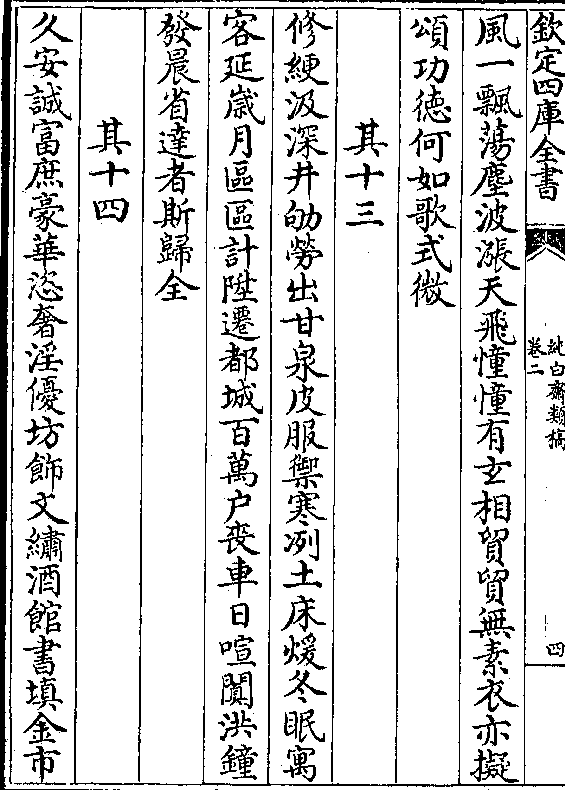 欽定四庫全書
純白齋類稿
卷二
四
風一飄蕩塵波漲天飛憧憧有玄相貿貿無素衣亦擬
頌功德何如歌式微
其十三
修綆汲深井劬勞出甘泉皮服禦寒冽土床煖冬眠寓
客延歲月區區計陞遷都城百萬户喪車日喧闐洪鐘
發晨省達者斯歸全
其十四
久安誠富庶豪華恣奢淫優坊飾文繡酒館書填金市